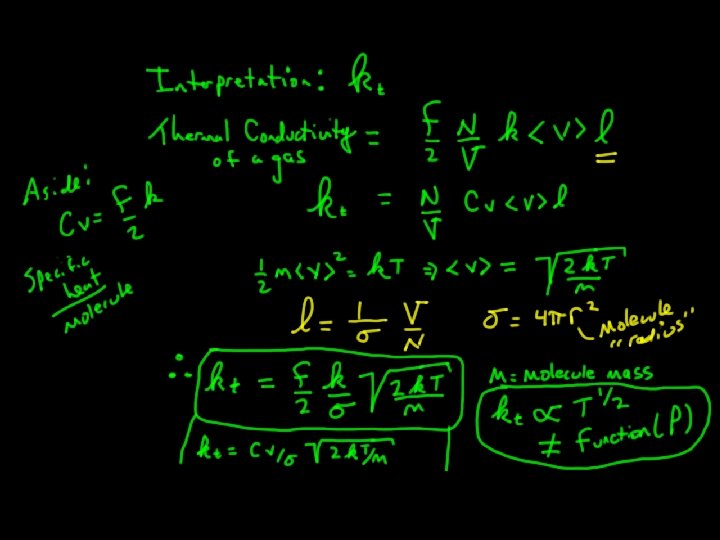 Interpretation: kₜ
Thermal Conductivity of a gas = f/2 N/V k <v> l
Aside:
Cv = f/2 k
Specific heat/molecule
kₜ = N/V Cv <v> l
1/2 m <v>² = kT ⇒ <v> = √(2kT/m)
l = 1/σ V/N
σ = 4πr²
Molecule "radius"
∴ kₜ = f/2 k/σ √(2kT/m)
M = Molecule mass
kₜ ∝ T^1/2
≠ Function(P)
kₜ = Cv/σ √(2kT/m)